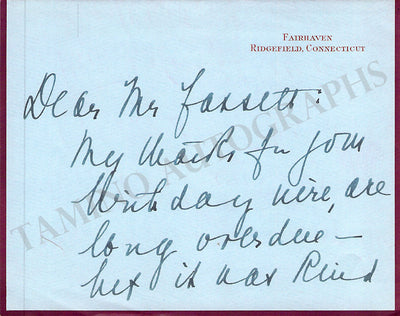 FAIRHAVEN
RIDGEFIELD, CONNECTICUT
Dear Mr Fassett:
My thanks for your
birthday wire, are
long overdue –
but it was kind
TAMINO AUTOGRAPHS